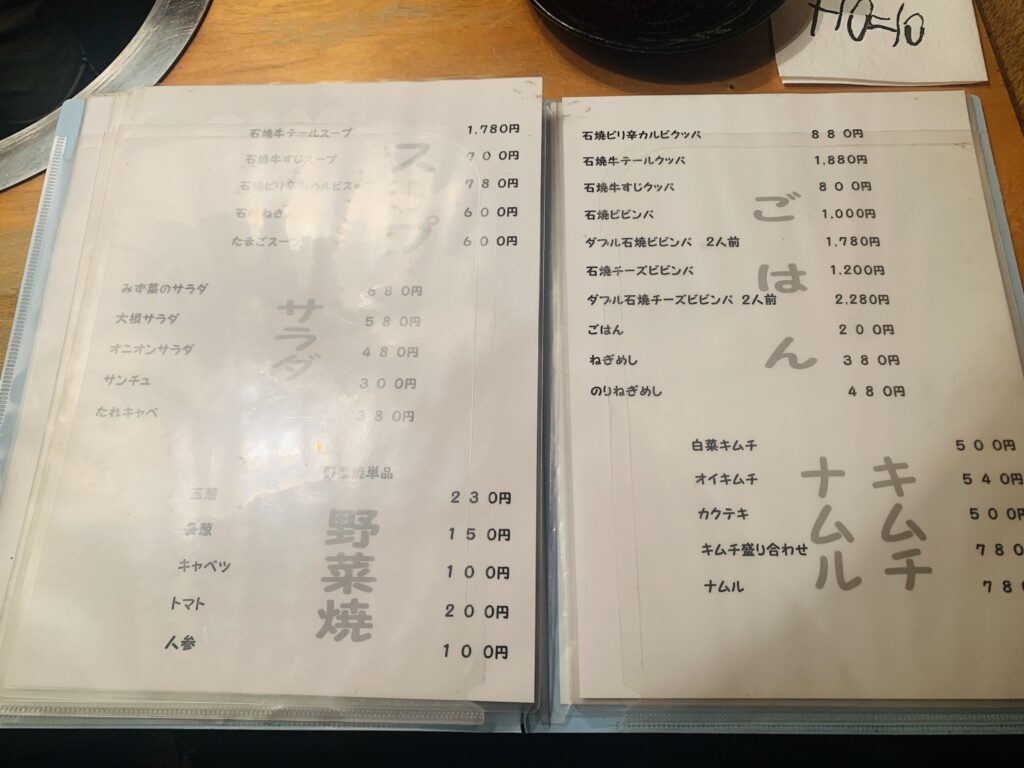 HO-10
石焼牛テールスープ 1,780円
石焼牛すじスープ 700円
石焼ピリ辛牛カルビスープ 780円
石焼ねぎ 600円
たまごスープ 600円
スープ
みず菜のサラダ 680円
大根サラダ 580円
オニオンサラダ 480円
サンチュ 300円
たれキャベ 380円
サラダ
野菜焼単品
玉葱 230円
長葱 150円
キャベツ 100円
トマト 200円
人参 100円
野菜焼
石焼ピリ辛カルビクッパ 880円
石焼牛テールクッパ 1,880円
石焼牛すじクッパ 800円
石焼ビビンバ 1,000円
ダブル石焼ビビンバ 2人前 1,780円
石焼チーズビビンバ 1,200円
ダブル石焼チーズビビンバ 2人前 2,280円
ごはん 200円
ねぎめし 380円
のりねぎめし 480円
ごはん
白菜キムチ 500円
オイキムチ 540円
カクテキ 500円
キムチ盛り合わせ 780
ナムル 78
キムチ
ナムル